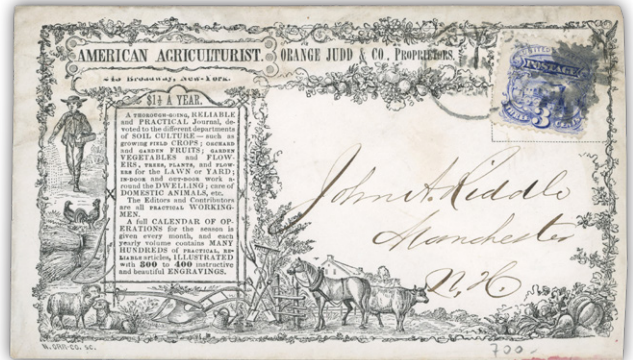 AMERICAN AGRICULTURIST. ORANGE JUDD & CO., PROPRIETORS.
Broadway, New-York.
$1½ A YEAR.
A THOROUGH-GOING, RELIABLE
and PRACTICAL Journal, de-
voted to the different departments
of SOIL CULTURE—such as
growing FIELD CROPS; ORCHARD
and GARDEN FRUITS; GARDEN
VEGETABLES and FLOW-
ERS, TREES, PLANTS, and FLOW-
ERS for the LAWN or YARD;
IN-DOOR and OUT-DOOR work a-
round the DWELLING; care of
DOMESTIC ANIMALS, etc.
The Editors and Contributors
are all PRACTICAL WORKING-
MEN.
A full CALENDAR OF OP-
ERATIONS for the season is
given every month, and each
yearly volume contains MANY
HUNDREDS of PRACTICAL, RE-
LIABLE articles, ILLUSTRATED
with 300 to 400 instructive
and beautiful ENGRAVINGS.
POSTAGE
3
John A. Riddle
Manchester
N. H.
N. ORR-CO. SC.
700.